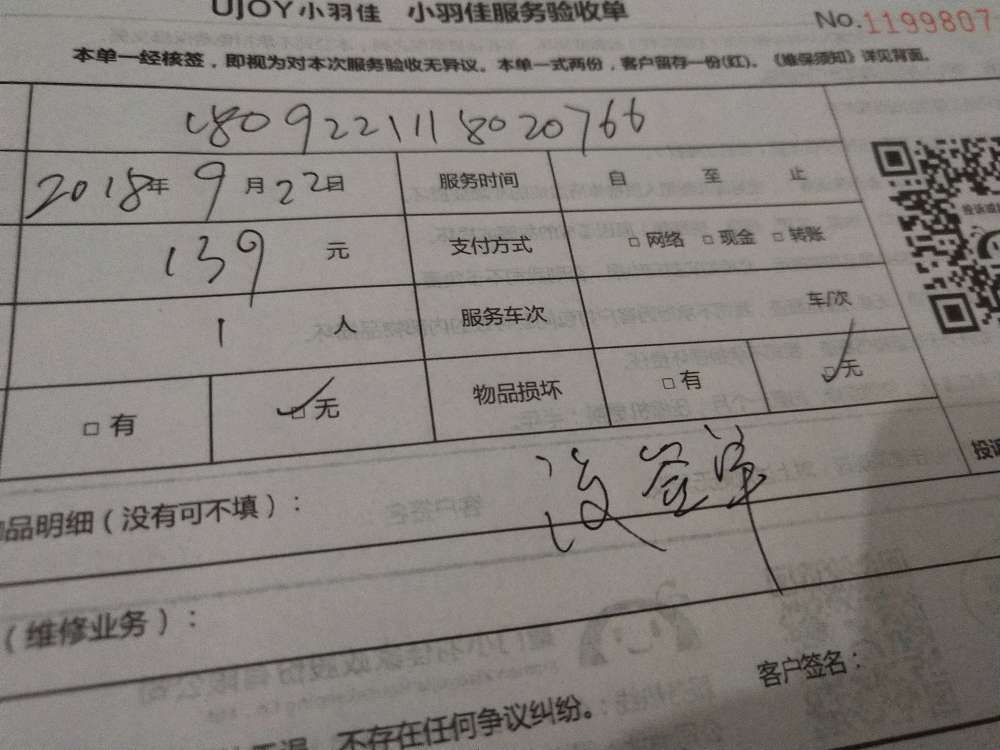 UJOY小羽佳 小羽佳服务验收单
No.1199807
本单一经核签，即视为对本次服务验收无异议。本单一式两份，客户留存一份(红)。《维保须知》详见背面。
1809221118020766
2018年9月22日 服务时间 自 至 止
139 元 支付方式 □网络 □现金 □转账
1 人 服务车次 车/次
□有 □无 物品损坏 □有 □无
品明细（没有可不填）： 没签单
（维修业务）：
客户签名：
不存在任何争议纠纷。